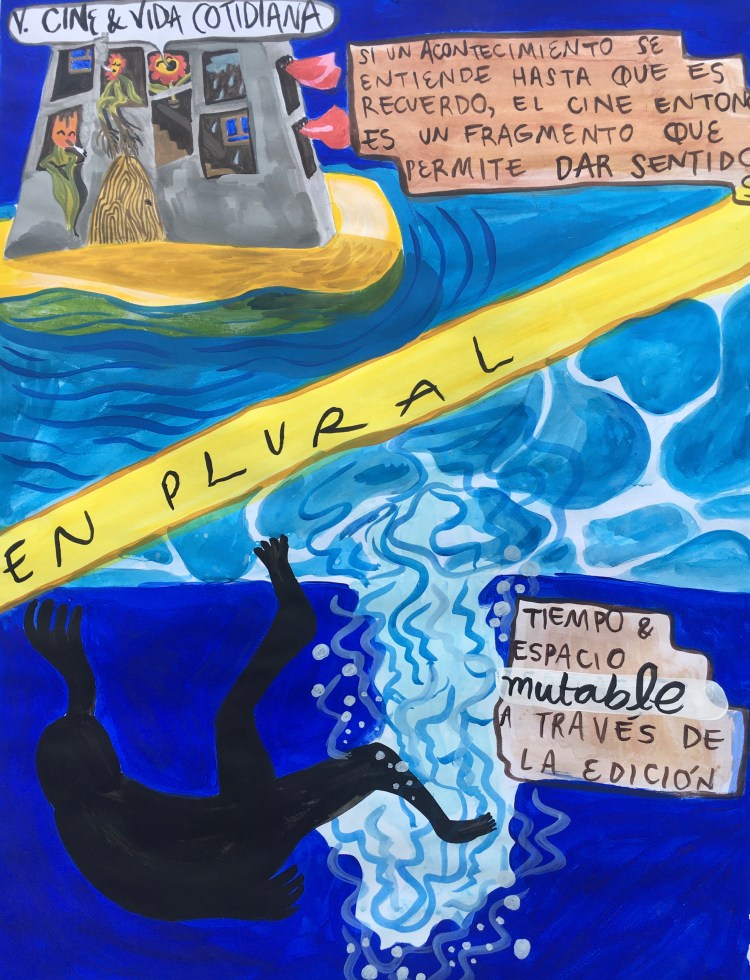 V. CINE & VIDA COTIDIANA
SI UN ACONTECIMIENTO SE
ENTIENDE HASTA QUE ES
RECUERDO, EL CINE ENTON
ES UN FRAGMENTO QUE
PERMITE DAR SENTIDO
EN PLURAL
TIEMPO &
ESPACIO
mutable
A TRAVÉS DE
LA EDICIÓN